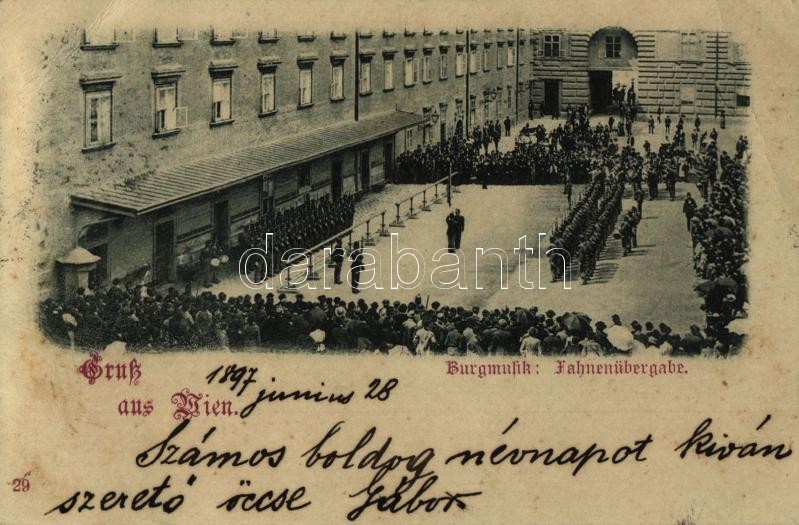 darabanth.com
Gruß
aus Wien.
Burgmusik: Fahnenübergabe.
1897
junius 28
Számos boldog névnapot kiván
szerető öccse Gábor
29